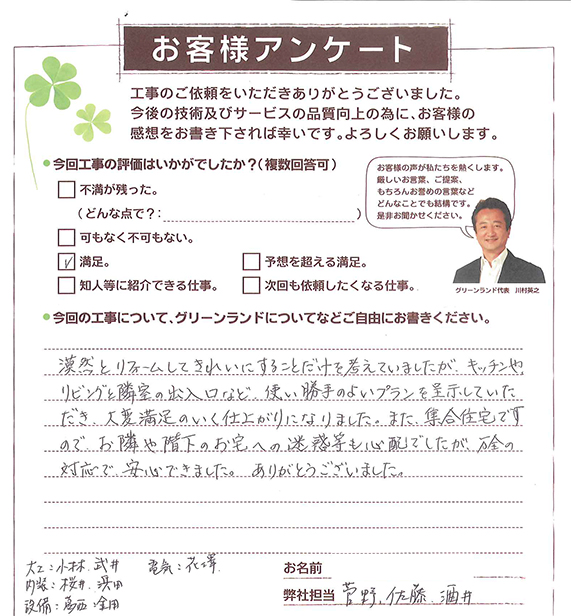 お客様アンケート
工事のご依頼をいただきありがとうございました。
今後の技術及びサービスの品質向上の為に、お客様の
感想をお書き下されば幸いです。よろしくお願いします。
今回工事の評価はいかがでしたか？（複数回答可）
不満が残った。
（どんな点で？：　）
可もなく不可もない。
満足。
予想を超える満足。
知人等に紹介できる仕事。
次回も依頼したくなる仕事。
お客様の声が私たちを熱くします。
厳しいお言葉、ご提案、
もちろんお誉めの言葉など
どんなことでも結構です。
是非お聞かせください。
グリーンランド代表　川村英之
今回の工事について、グリーンランドについてなどご自由にお書きください。
漠然とリフォームしてきれいにすることだけを考えていましたが、キッチンや、
リビングと隣室の出入口など、使い勝手のよいプランを呈示していた
だき、大変満足のいく仕上がりになりました。また、集合住宅です
ので、お隣や階下のお宅への迷惑等も心配でしたが、万全の
対応で、安心できました。ありがとうございました。
大工：小林、武井　電気：花澤
内装：桜井、濱田
設備：葛西、金田
お名前
弊社担当　菅野、佐藤、酒井